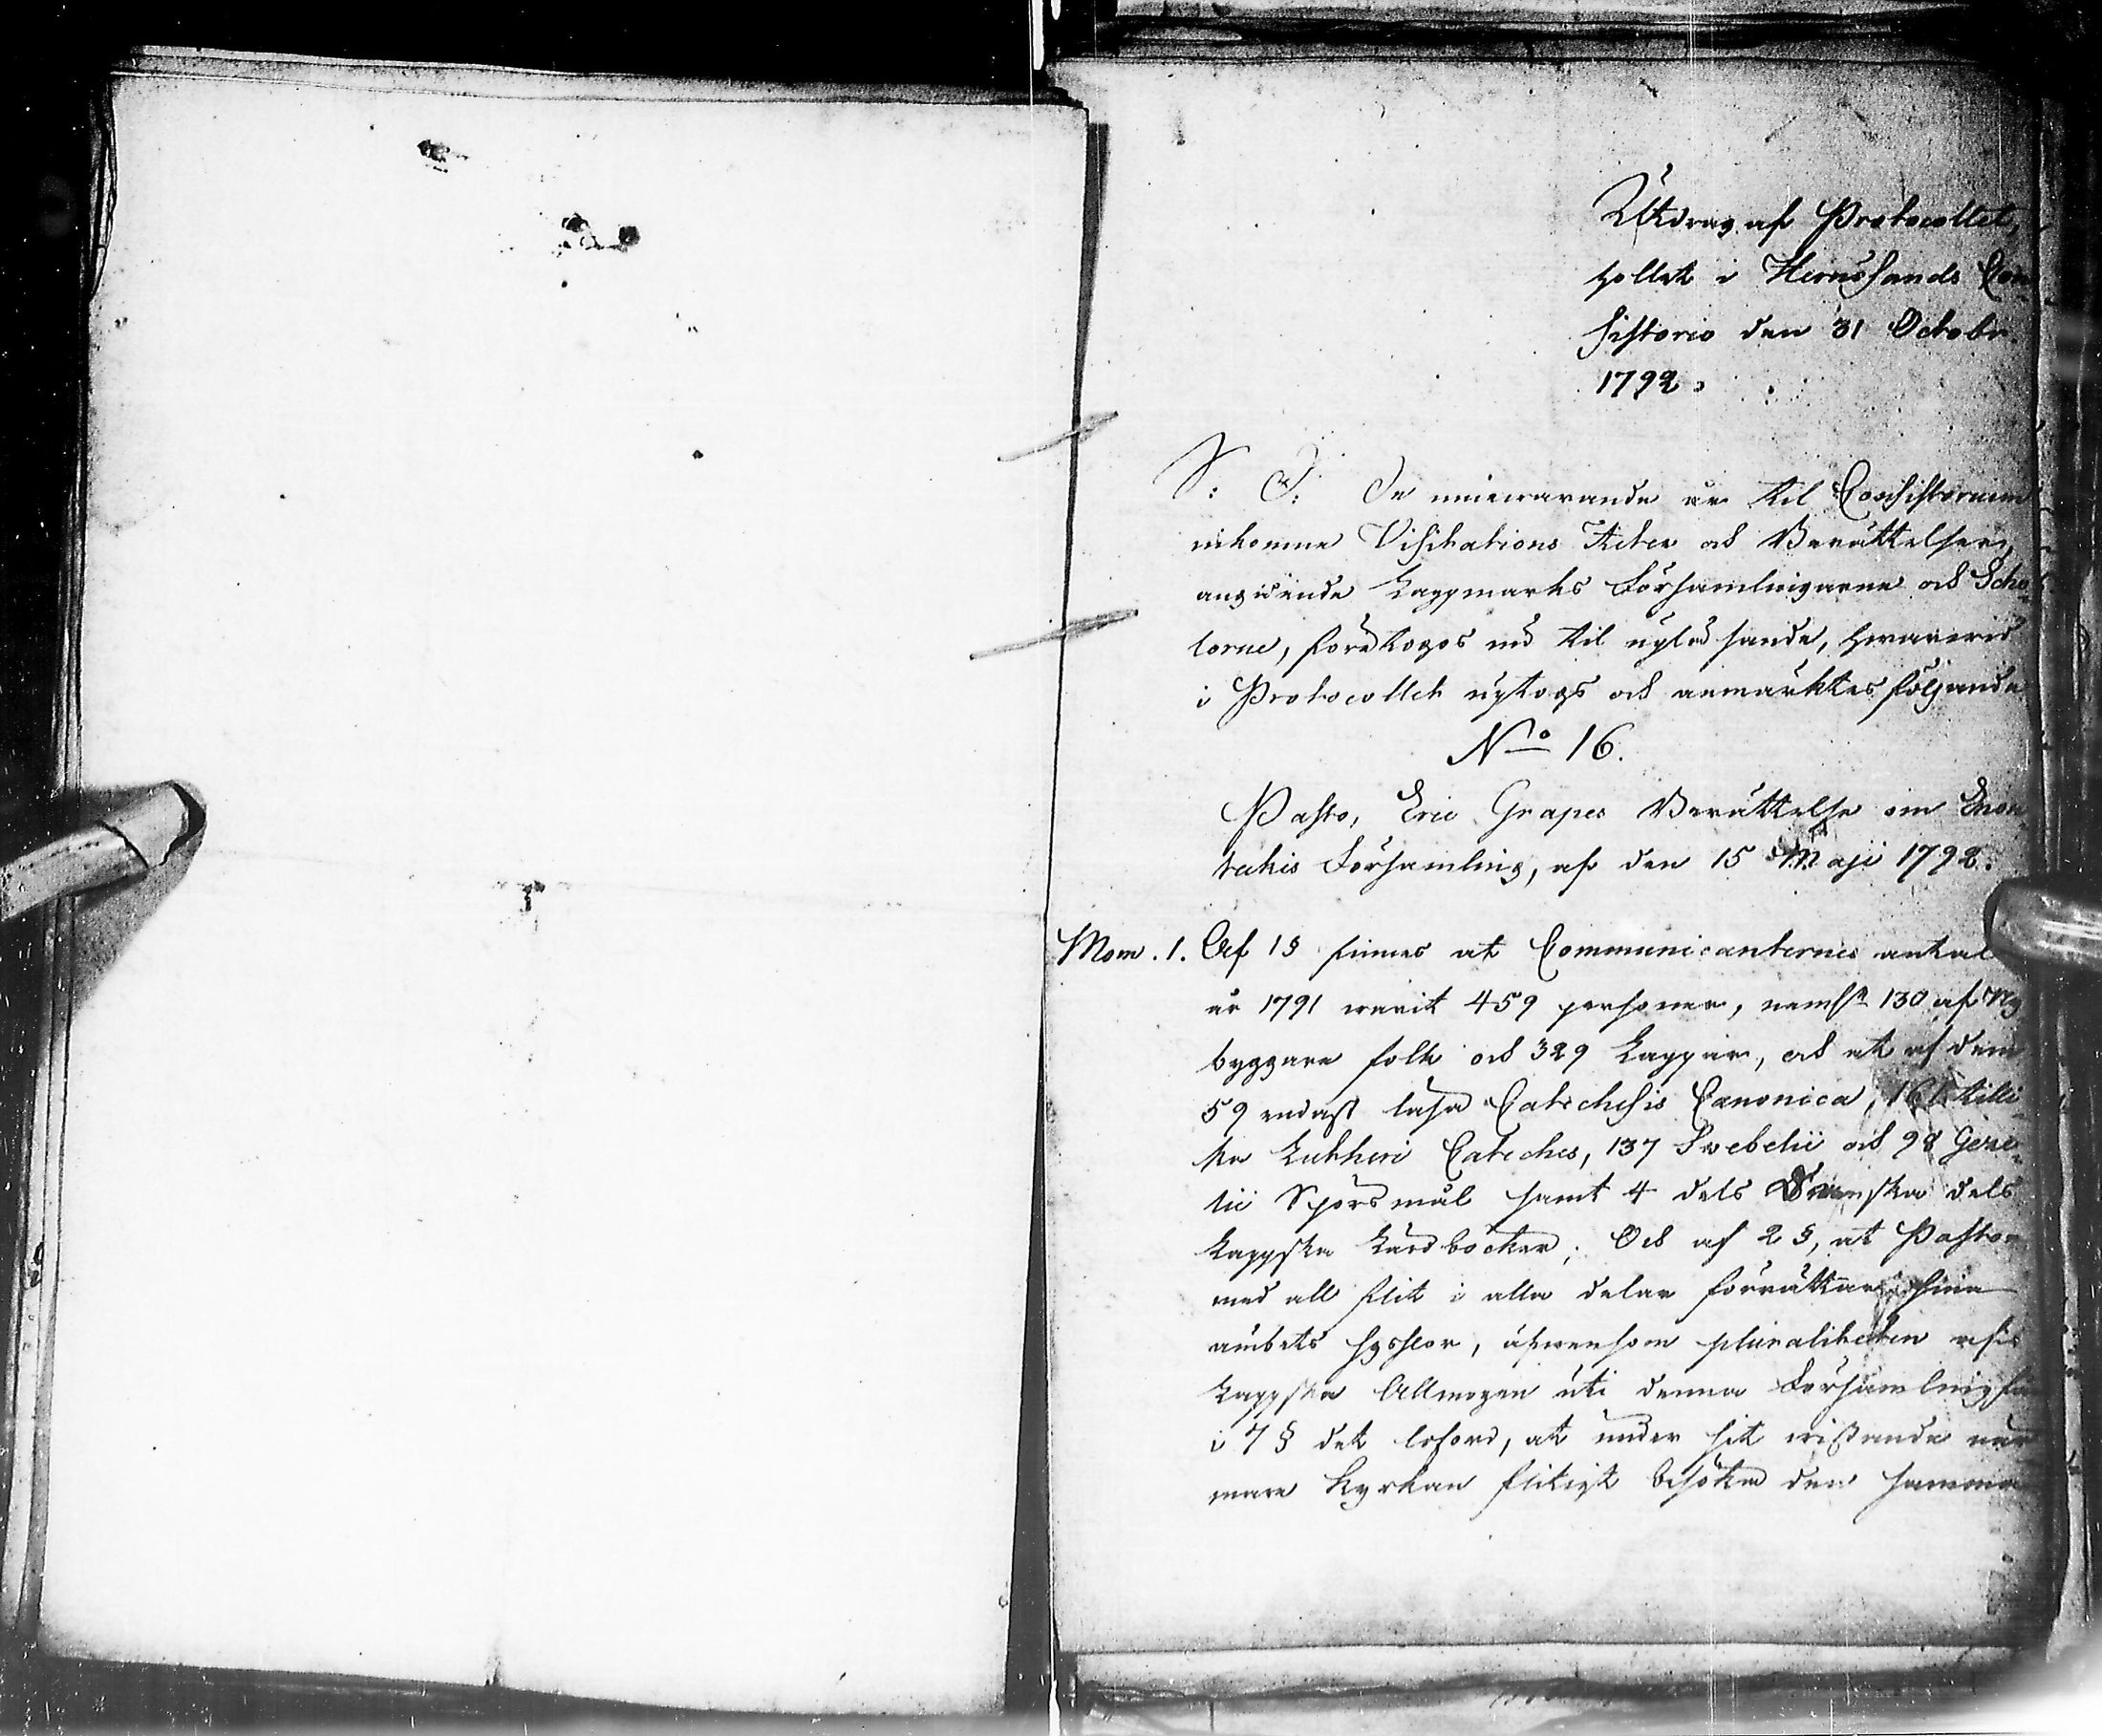 Utdrag af Protocollet,
hollet i Hernösands Con¬
sistorio den 31 Octobr.
1792.
S: D: De nuwarande år til Consistorium
inkomne Visitations Acter och Berättelser,
angående Lappmarks Församlingarne och Scho¬
lorne, företogos nu til upläsande, hwarwid
i Protocollet uptogs och anmärktes följande
No 16.
Past., Eric Grapes Berättelse om Enon¬
tekis Församling, af den 15 Maji 1792.
Mom. 1. Af 1 § finnes at Communicanternes antal
år 1791 warit 459 personer, neml. 130 af Ny
byggare folk och 329 Lappar, och at af dem
59 endast läsa Catechesis Canonica, 161 tilli¬
ka Lutheri Cateches, 137 Svebelii och 98 Geze¬
lii Spörsmål samt 4 dels Svenska dels
Lappska Läroböcker; Och af 2 §, at Pastor
med all flit i alla delar förrättar sina
ämbets sysslor, äfwensom pluraliteten af
Lappska Allmogen uti denna Församling får
i 7 § det loford, at under sit wistande när
mare Kyrkan flitigt besöka den samma